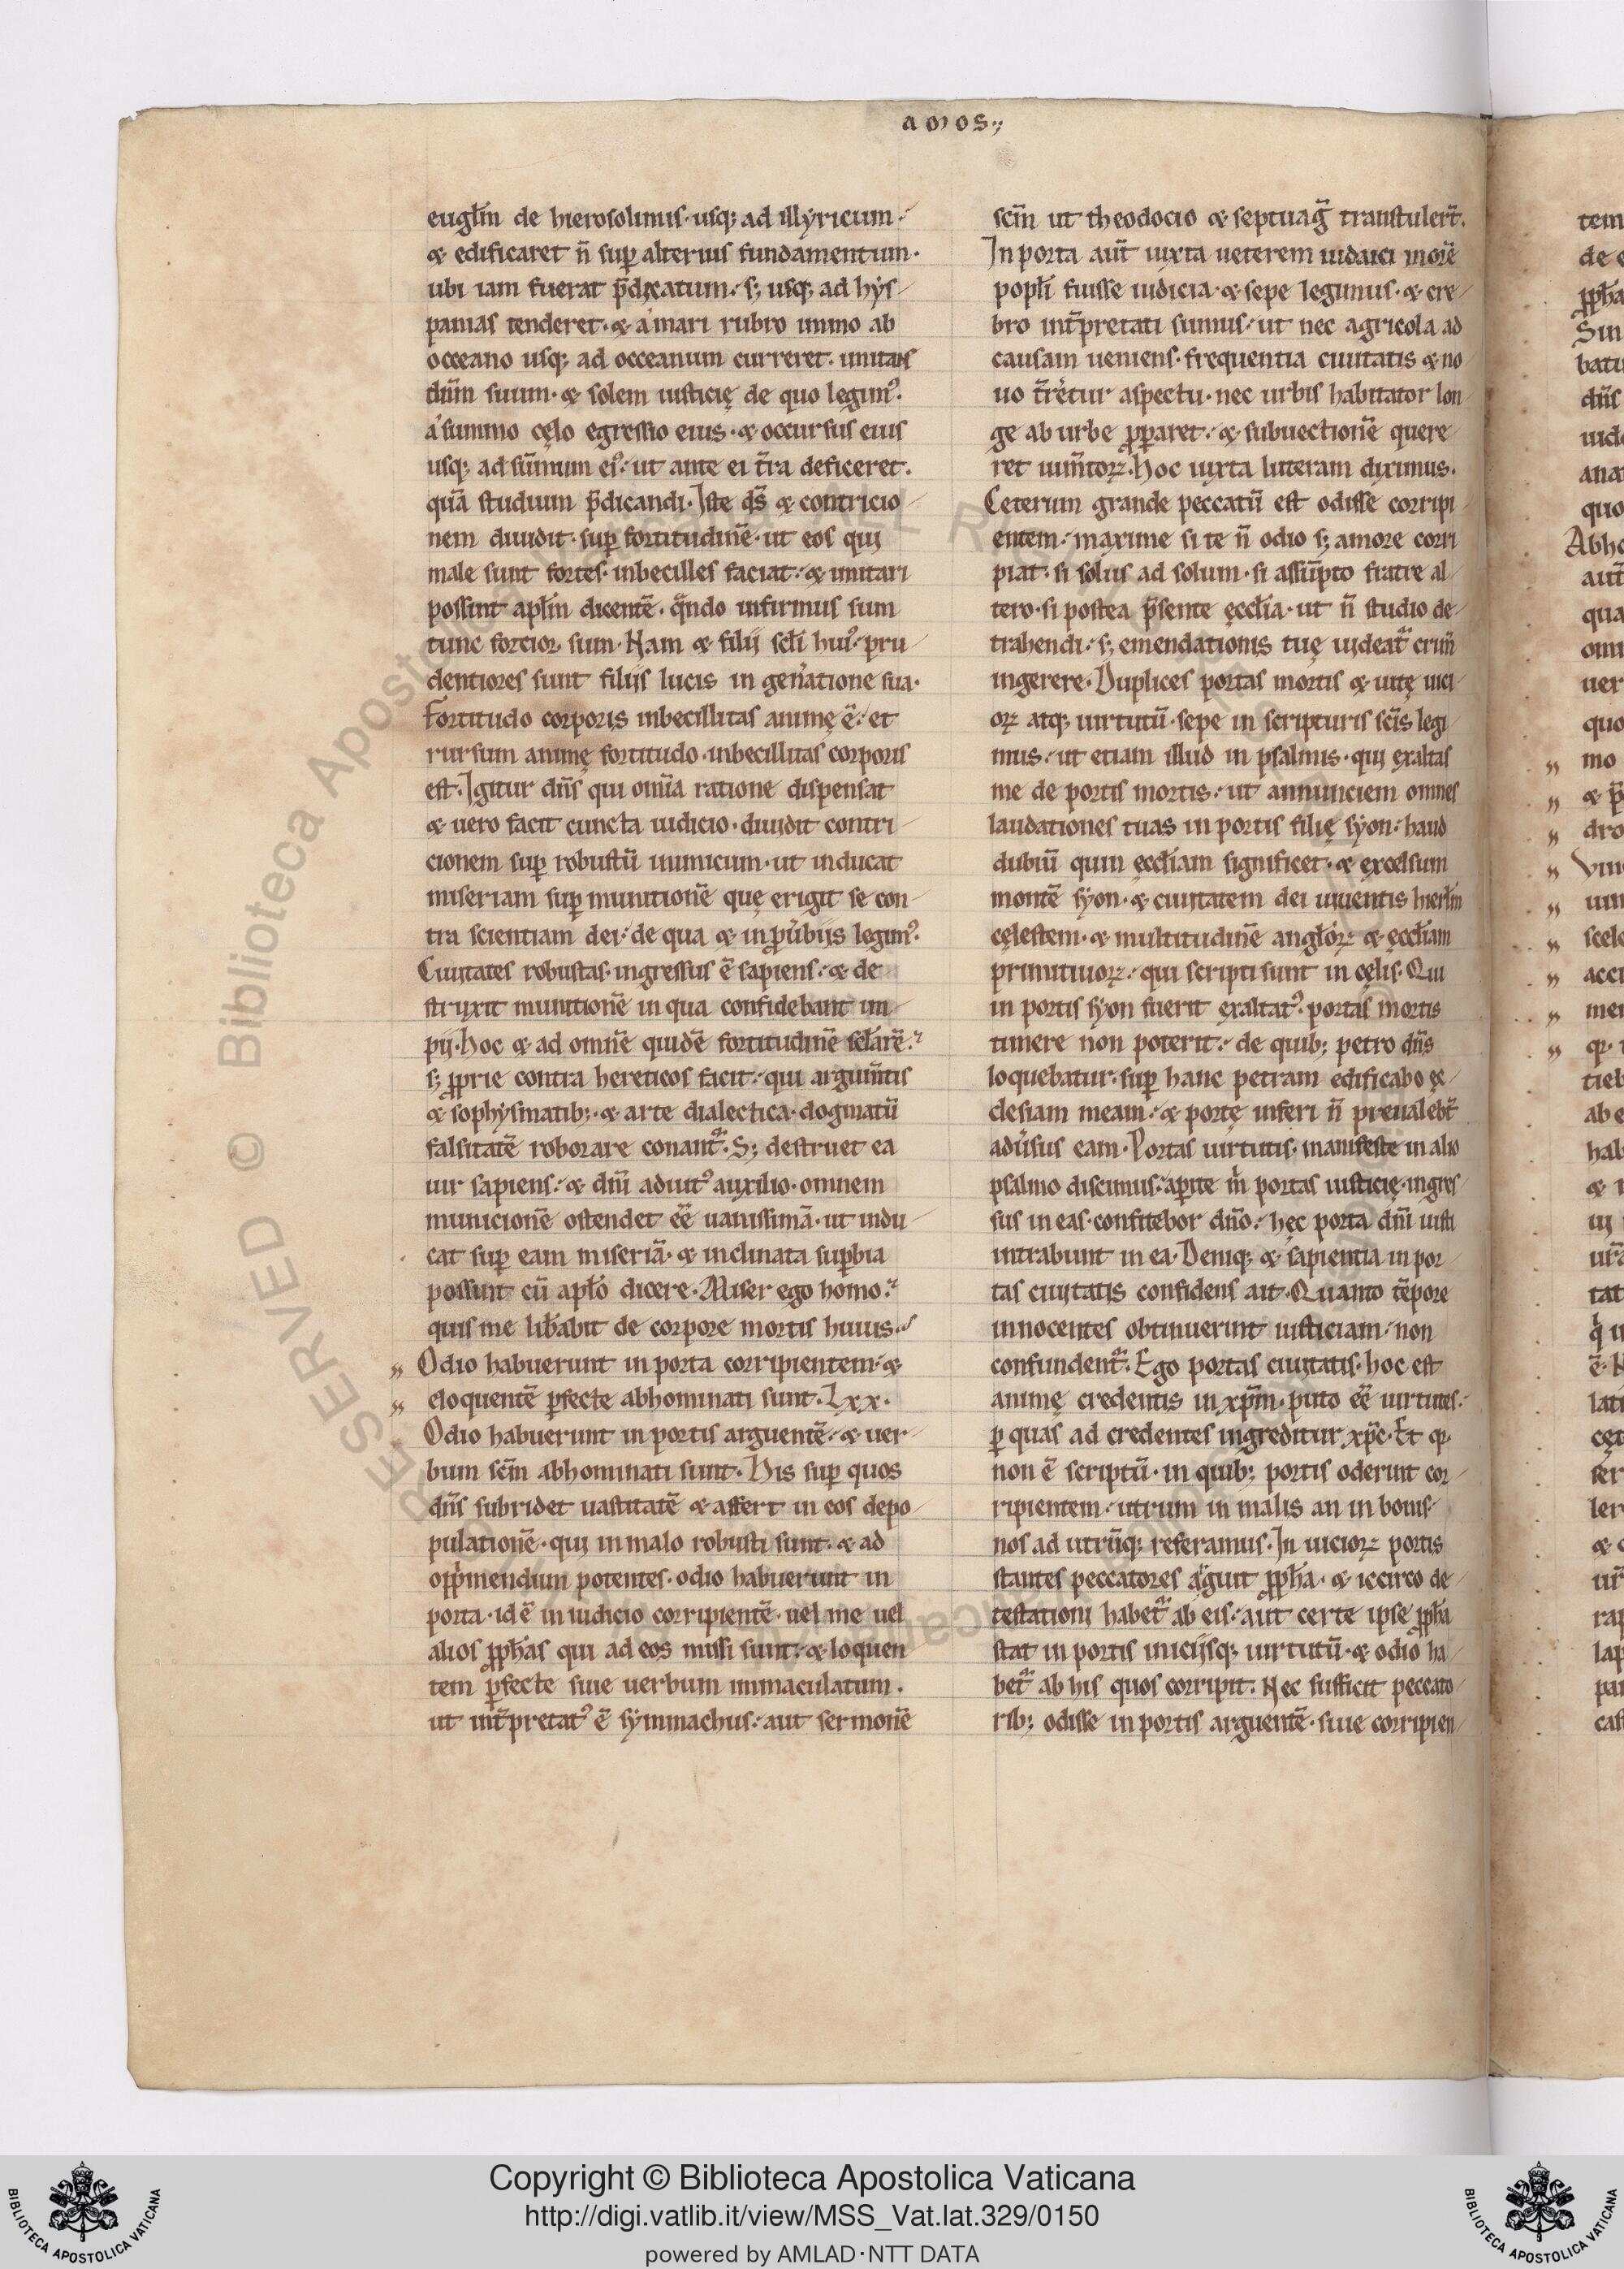 amos.,
euglm̄ de hierosolimis· usq; ad illyricum·
& edificaret n̄ sup̱ alterius fundamentum·
ubi iam fuerat p̄dicatum· s; usq; ad hys
panias tenderet· & a mari rubro immo ab
occeano usq; ad occeanum curreret· imitans
dnm̄ suum· & solem iusticię de quo legim᾽·
a summo cęlo egressio eius· & occursus eius
usq; ad sūmum ei᾽· ut ante ei t̄ra deficeret·
quā studium p̄dicandi· Iste ds̄ & contricio
nem diuidit· sup̱ fortitudinē· ut eos qui
male sunt fortes· inbecilles faciat· & imitari
possint aplm̄ dicentē· qndo infirmus sum
tunc forcior sum· Nam & filij scli hui᾽· pru
dentiores sunt filijs lucis in gen̓atione sua·
Fortitudo corporis inbecillitas animę ē· et
rursum animę fortitudo· inbecillitas corporis
est· Igitur dn̄s qui omīa ratione dispensat
& uero facit cuncta iudicio· diuidit contri
cionem sup̱ robustū inimicum· ut inducat
miseriam sup̱ munitionē quę erigit se con
tra scientiam dei· de qua & in p̱uerbijs legim᾽·
Ciuitates robustas· ingressus ē sapiens· & de
struxit munitionē in qua confidebant im
pij· hoc & ad omnē quidē fortitudinē sclarē·
s; p̱prie contra hereticos facit· qui argum̄tis
& sophysmatib;· & arte dialectica· dogmatū
falsitatē roborare conant᷑· S; destruet ea
uir sapiens· & dnī adiut᾽ auxilio· omnem
municionē ostendet eē uanissimā· ut indu
cat sup̱ eam miseriā· & inclinata sup̱bia
possint cū aplo dicere· Miser ego homo·
quis me lib̄abit de corpore mortis huius·
„ Odio habuerunt in porta corripientem· &
„ eloquentē p̱fecte abhominati sunt· Lxx·
Odio habuerunt in portis arguentē· & uer
bum scm̄ abhominati sunt· His sup̱ quos
dn̄s subridet uastitatē & affert in eos depo
pulationē· qui in malo robusti sunt· & ad
opp̓mendum potentes· odio habuerunt in
porta· id ē in iudicio corripientē· uel me uel
alios p̱phas qui ad eos missi sunt· & loquen
tem p̱fecte siue uerbum immaculatum·
ut int̄pretat᾽ ē symmachus· aut sermonē
scm̄ ut theodocio & septuaḡ transtulert̄·
In porta aut̄ iuxta ueterem iudaici morē
popli fuisse iudicia· & sepe legimus· & cre
bro int̄pretati sumus· ut nec agricola ad
causam ueniens· frequentia ciuitatis & no
uo t̄reretur aspectu· nec urbis habitator lon
ge ab urbe p̱p̱aret· & subuectionē quere
ret iumtoꝝ· Hoc iuxta litteram diximus·
Ceterum grande peccatū est odisse corripi
entem· maxime si te n̄ odio s; amore corri
piat· si solus ad solum· si assūpto fratre al
tero· si postea p̄sente ęcclia· ut n̄ studio de
trahendi· s; emendationis tuę uideat᷑ crim̄
ingerere· Duplices portas mortis & uitę uici
oꝝ atq; uirtutū· sepe in scripturis scīs legi
mus· ut etiam illud in psalmis· qui exaltas
me de portis mortis· ut annunciem omnes
laudationes tuas in portis filię syon· haud
dubiū quin ęccliam significet· & excelsum
montē syon· & ciuitatem dei uiuentis hierlm
cęlestem· & multitudinē angloꝝ & ęccliam
primitiuoꝝ· qui scripti sunt in cęlis· Qui
in portis syon fuerit exaltat᾽· portas mortis
timere non poterit· de quib; petro dn̄s
loquebatur· sup̱ hanc petram edificabo ęc
clesiam meam· & portę inferi n̄ preualebt̄
adūsus eam· Portas uirtutis· manifeste in alio
psalmo discimus· ap̱ite m̓ portas iusticię· ingres
sus in eas· confitebor dn̄o· hęc porta dn̄i iusti
intrabunt in ea· Deniq; & sapientia in por
tas ciuitatis confidens ait· Quanto tēpore
innocentes obtinuerint iusticiam· non
confundent᷑· Ego portas ciuitatis· hoc est
animę credentis in xpm̄· puto eē uirtutes·
p̱ quas ad credentes ingreditur xpc̄· Et qꝫ
non ē scriptū· in quib; portis oderint cor
ripientem· utrum in malis an in bonis·
nos ad utrūq; referamus· In uicioꝝ portis
stantes peccatores aguit p̱pha· & iccirco de
testationi habet᷑ ab eis· aut certe ipse p̱pha
stat in portis iniciisq; uirtutū· & odio ha
bet᷑ ab his quos corripit· Nec sufficit peccato
rib; odisse in portis arguentē· siue corripien
Copyright © Biblioteca Apostolica Vaticana
http://digi.vatlib.it/view/MSS_Vat.lat.329/0150
powered by AMLAD·NTT DATA
BIBLIOTECA APOSTOLICA VATICANA
BIBLIOTECA APOSTOLICA VATICANA